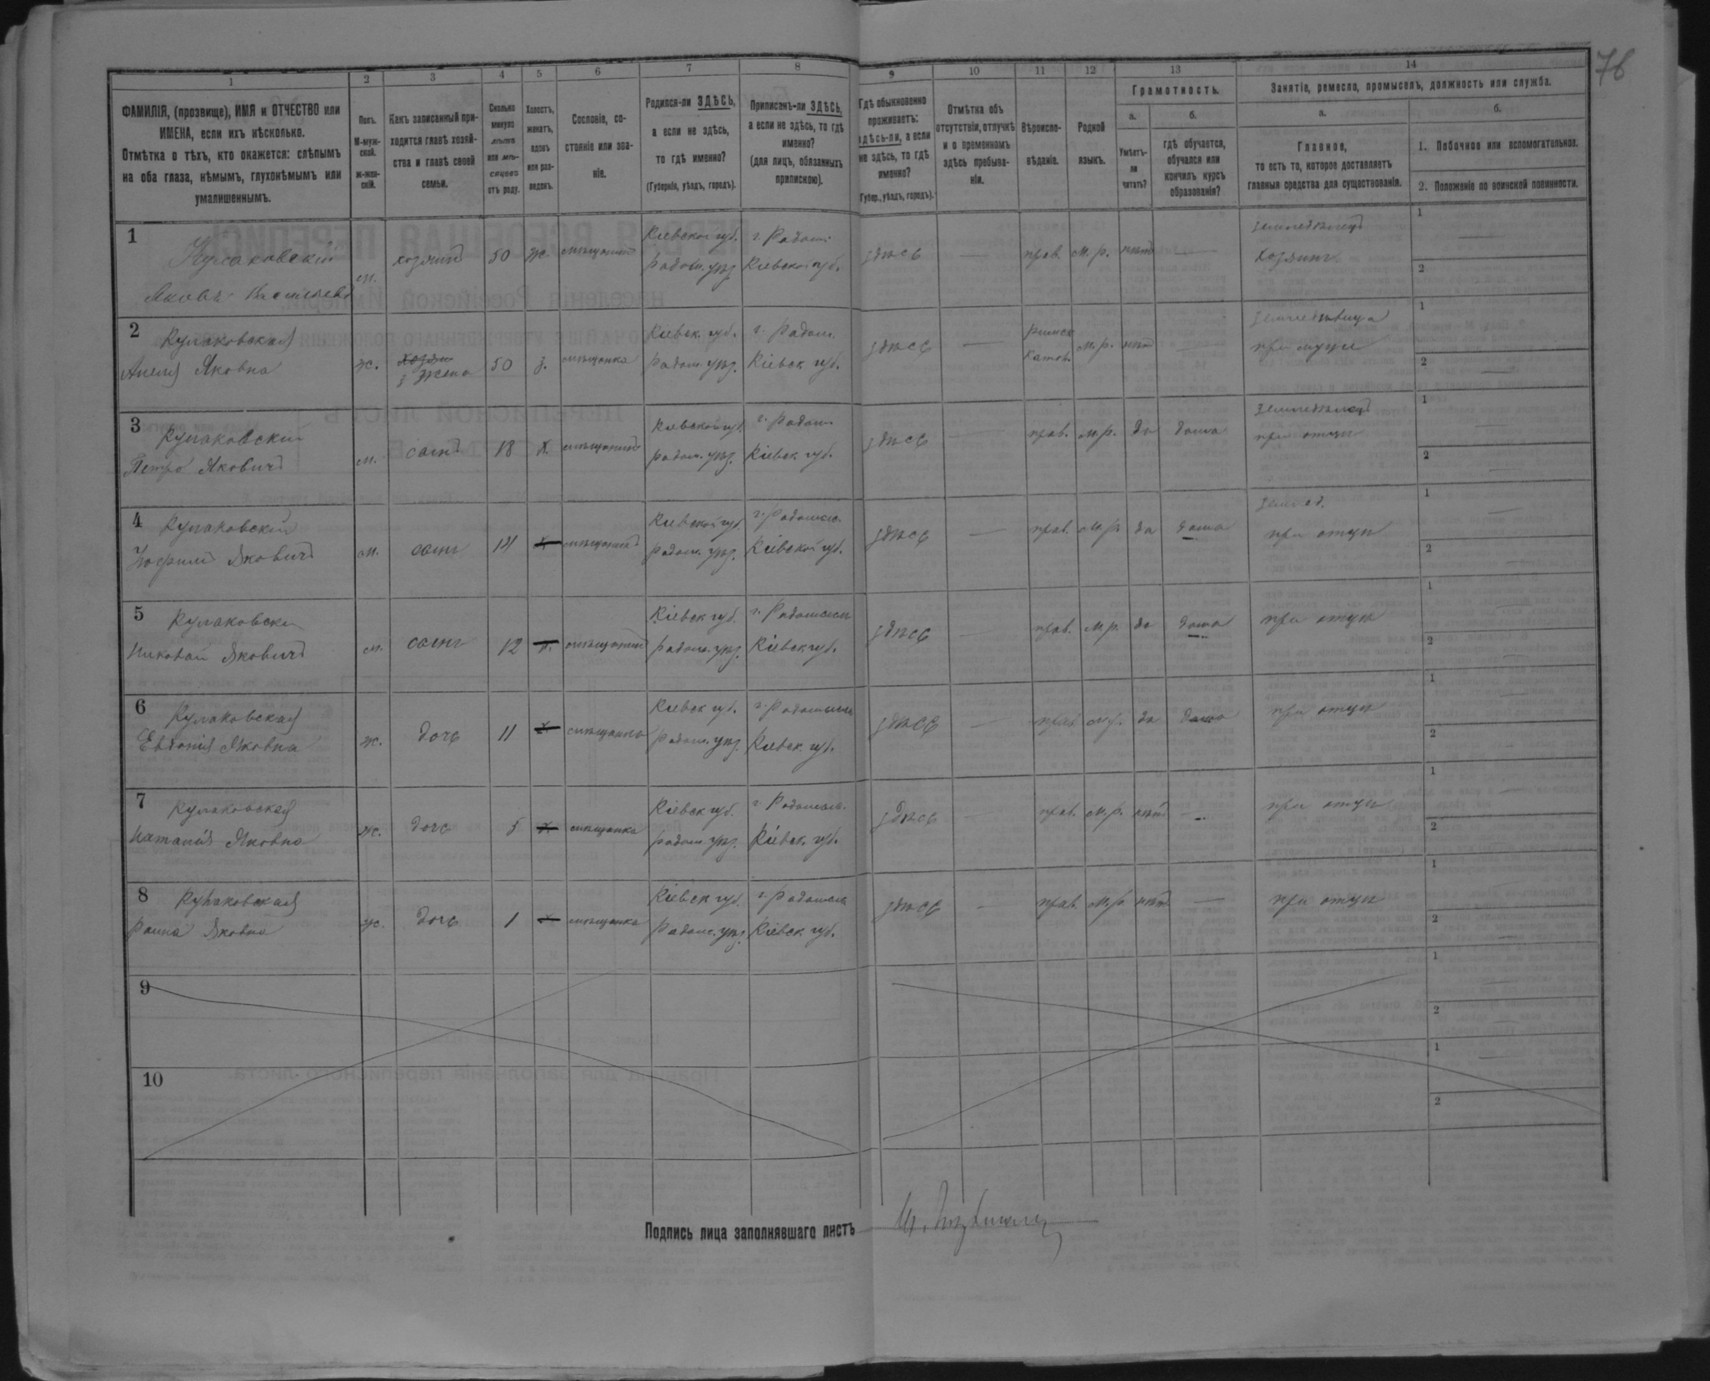 76
1 2 3 4 5 6 7 8 9 10 11 12 13 14
ФАМИЛІЯ, (прозвище), ИМЯ и ОТЧЕСТВО или
ИМЕНА, если ихъ нѣсколько.
Отмѣтка о тѣхъ, кто окажется: слѣпымъ
на оба глаза, нѣмымъ, глухонѣмымъ или
умалишеннымъ.
Полъ.
М-муж-
ской.
Ж-жен-
скій.
Какъ записанный при-
ходится главѣ хозяй-
ства и главѣ своей
семьи.
Сколько
минуло
лѣтъ
или мѣ-
сяцевъ
отъ роду.
Холостъ,
женатъ,
вдовъ
или раз-
веденъ.
Сословіе, со-
стояніе или зва-
ніе.
Родился-ли ЗДѢСЬ,
а если не здѣсь,
то гдѣ именно?
(Губернія, уѣздъ, городъ).
Приписанъ-ли ЗДѢСЬ,
а если не здѣсь, то гдѣ
именно?
(для лицъ, обязанныхъ
припискою).
Гдѣ обыкновенно
проживаетъ:
здѣсь-ли, а если
не здѣсь, то гдѣ
именно?
(Губер., уѣздъ, городъ).
Отмѣтка объ
отсутствіи, отлучкѣ
и о временномъ
здѣсь пребыва-
ніи.
Вѣроиспо-
вѣданіе.
Родной
языкъ.
Грамотность.
а.
Умѣетъ-
ли
читать?
б.
гдѣ обучается,
обучался или
кончилъ курсъ
образованія?
Занятіе, ремесло, промыселъ, должность или служба.
а.
Главное,
то есть то, которое доставляетъ
главныя средства для существованія.
б.
1. Побочное или вспомогательное.
2. Положеніе по воинской повинности.
1
Яковъ
м. хозяинъ 50 ж. мѣщанинъ
Кіевской губ.
Радом. уѣз.
г. Радом.
Кіевской губ.
здѣсь — прав. м. р. нѣтъ —
земледѣлецъ
хозяинъ
1
2
2 Кулаковская
Яковна
ж. жена 50 з. мѣщанка
Кіевск. губ.
Радом. уѣз.
г. Радом.
Кіевск. губ.
здѣсь — римск.
катол. м. р. нѣтъ —
при мужѣ
1
2
3 Кулаковскій
Петръ Яковичъ
м. сынъ 18 х мѣщанинъ
Кіевской губ.
Радом. уѣз.
г. Радом.
Кіевск. губ.
здѣсь — прав. м. р. да дома
земледѣлецъ
при отцѣ
1
2
4 Кулаковскій
Яковичъ
м. сынъ 14 х мѣщанинъ
Кіевской губ.
Радом. уѣз.
г. Радомысль
Кіевской губ.
здѣсь — прав. м. р. да дома
землед.
при отцѣ
1
2
5
Николай Яковичъ
м. сынъ 12 х. мѣщанинъ
Кіевск. губ.
Радом. уѣз.
г. Радомысль
Кіевск. губ.
здѣсь — прав. м. р. да дома
при отцѣ
1
2
6 Кулаковская
Евдокія Яковна
ж. дочь 11 х. мѣщанка
Кіевск. губ.
Радом. уѣз.
г. Радомысль
Кіевск. губ.
здѣсь — прав. м. р. да дома
при отцѣ
1
2
7 Кулаковская
Наталія Яковна
ж. дочь 5 х. мѣщанка
Кіевск. губ.
Радом. уѣз.
г. Радомысль
Кіевск. губ.
здѣсь — прав. м. р. нѣтъ —
при отцѣ
1
2
8 Кулаковская
Яковна
ж. дочь 1 х мѣщанка
Кіевск. губ.
Радом. уѣз.
г. Радомысль
Кіевск. губ.
здѣсь — прав. м. р. нѣтъ —
при отцѣ
1
2
9
1
2
10
1
2
Подпись лица заполнявшаго листъ